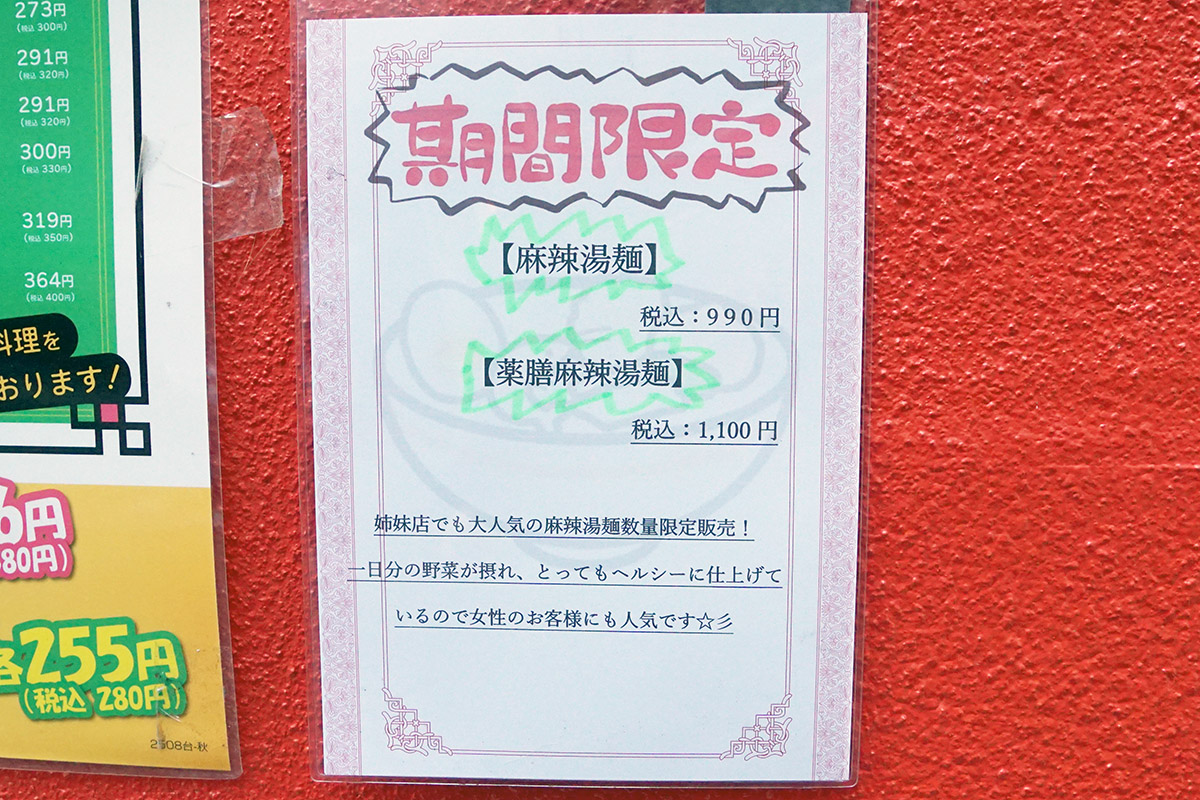 273円
(税込 300円)
291円
(税込 320円)
291円
(税込 320円)
300円
(税込 330円)
319円
(税込 350円)
364円
(税込 400円)
料理を
おります!
6円
80円)
各255円
(税込 280円)
2508台-秋
期間限定
【麻辣湯麺】
税込：990円
【薬膳麻辣湯麺】
税込：1,100円
姉妹店でも大人気の麻辣湯麺数量限定販売！
一日分の野菜が摂れ、とってもヘルシーに仕上げて
いるので女性のお客様にも人気です☆彡